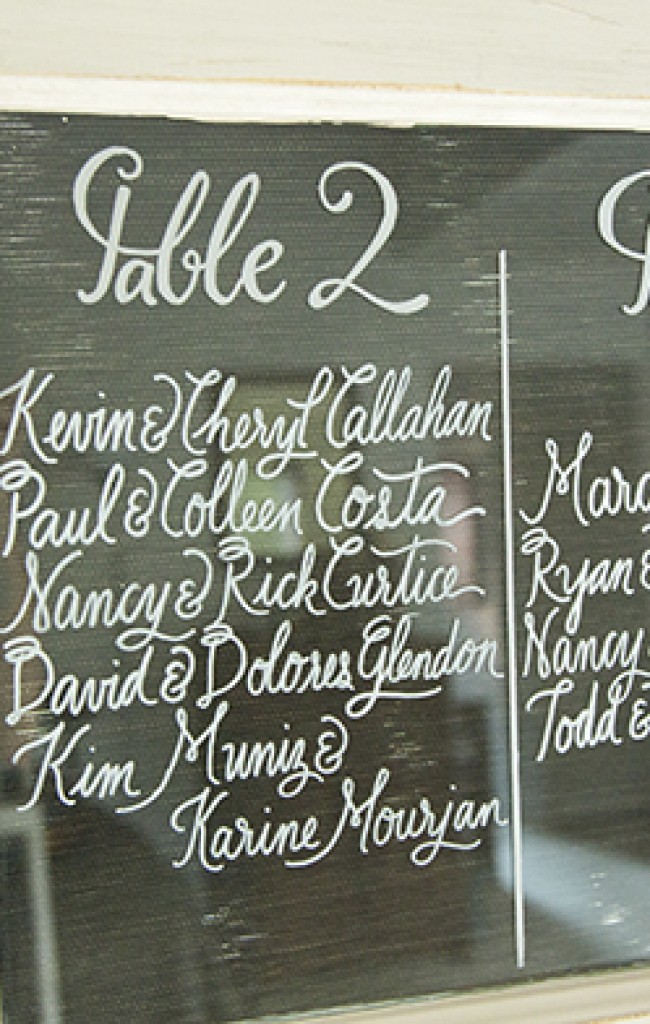 Table 2
Kevin & Cheryl Callahan
Paul & Colleen Costa
Nancy & Rick Curtice
David & Dolores Glendon
Kim Muniz &
Karine Mourjan
Ryan &
Nancy
Todd &